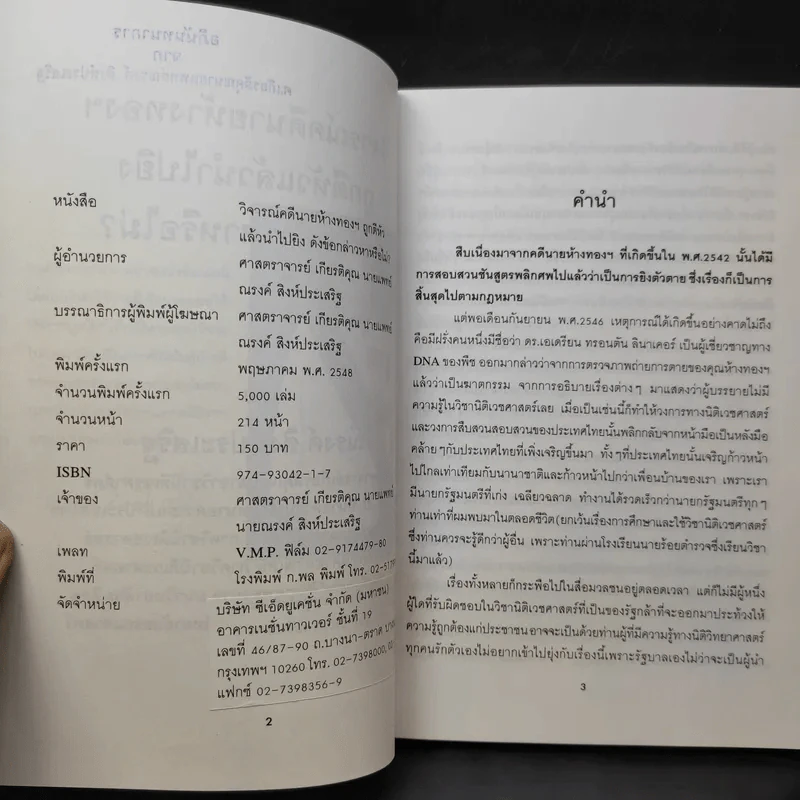 หนังสือ วิจารณ์คดีนายห้างทองฯ ถูกตีหัว
แล้วนำไปยิง ดังข้อกล่าวหาหรือไม่?
ผู้อำนวยการ ศาสตราจารย์ เกียรติคุณ นายแพทย์
ณรงค์ สิงห์ประเสริฐ
บรรณาธิการผู้พิมพ์ผู้โฆษณา ศาสตราจารย์ เกียรติคุณ นายแพทย์
ณรงค์ สิงห์ประเสริฐ
พิมพ์ครั้งแรก พฤษภาคม พ.ศ. 2548
จำนวนพิมพ์ครั้งแรก 5,000 เล่ม
จำนวนหน้า 214 หน้า
ราคา 150 บาท
ISBN 974-93042-1-7
เจ้าของ ศาสตราจารย์ เกียรติคุณ นายแพทย์
นายณรงค์ สิงห์ประเสริฐ
เพลท V.M.P. ฟิล์ม 02-9174479-80
พิมพ์ที่ โรงพิมพ์ ก.พล พิมพ์ โทร. 02-517
จัดจำหน่าย บริษัท ซีเอ็ดยูเคชั่น จำกัด (มหาชน)
อาคารเนชั่นทาวเวอร์ ชั้นที่ 19
เลขที่ 46/87-90 ถ.บางนา-ตราด
กรุงเทพฯ 10260 โทร. 02-7398000,
แฟกซ์ 02-7398356-9
2
คำนำ
สืบเนื่องมาจากคดีนายห้างทองฯ ที่เกิดขึ้นใน พ.ศ.2542 นั้นได้มี
การสอบสวนชันสูตรพลิกศพไปแล้วว่าเป็นการยิงตัวตาย ซึ่งเรื่องก็เป็นการ
สิ้นสุดไปตามกฎหมาย
แต่พอเดือนกันยายน พ.ศ.2546 เหตุการณ์ได้เกิดขึ้นอย่างคาดไม่ถึง
คือมีฝรั่งคนหนึ่งมีชื่อว่า ดร.เอเดรียน ทรอนตัน ลินาเคอร์ เป็นผู้เชี่ยวชาญทาง
DNA ของพืช ออกมากล่าวว่าจากการตรวจภาพถ่ายการตายของคุณห้างทองฯ
แล้วว่าเป็นฆาตกรรม จากการอธิบายเรื่องต่างๆ มาแสดงว่าผู้บรรยายไม่มี
ความรู้ในวิชานิติเวชศาสตร์เลย เมื่อเป็นเช่นนี้ก็ทำให้วงการทางนิติเวชศาสตร์
และวงการสืบสวนสอบสวนของประเทศไทยนั้นพลิกกลับจากหน้ามือเป็นหลังมือ
คล้ายๆกับประเทศไทยที่เพิ่งเจริญขึ้นมา ทั้งๆที่ประเทศไทยนั้นเจริญก้าวหน้า
ไปไกลเท่าเทียมกับนานาชาติและก้าวหน้าไปกว่าเพื่อนบ้านของเรา เพราะเรา
มีนายกรัฐมนตรีที่เก่ง เฉลียวฉลาด ทำงานได้รวดเร็วกว่านายกรัฐมนตรีทุกๆ
ท่านเท่าที่ผมพบมาในตลอดชีวิต(ยกเว้นเรื่องการศึกษาและใช้วิชานิติเวชศาสตร์
ซึ่งท่านควรจะรู้ดีกว่าผู้อื่น เพราะท่านผ่านโรงเรียนนายร้อยตำรวจซึ่งเรียนวิชา
นี้มาแล้ว)
เรื่องทั้งหลายก็กระพือไปในสื่อมวลชนอยู่ตลอดเวลา แต่ก็ไม่มีผู้หนึ่ง
ผู้ใดที่รับผิดชอบในวิชานิติเวชศาสตร์ที่เป็นของรัฐกล้าที่จะออกมาประท้วงให้
ความรู้ถูกต้องแก่ประชาชน อาจจะเป็นด้วยท่านผู้ที่มีความรู้ทางนิติวิทยาศาสตร์
ทุกคนรักตัวเองไม่อยากเข้าไปยุ่งกับเรื่องนี้เพราะรัฐบาลเองไม่ว่าจะเป็นผู้นำ
3